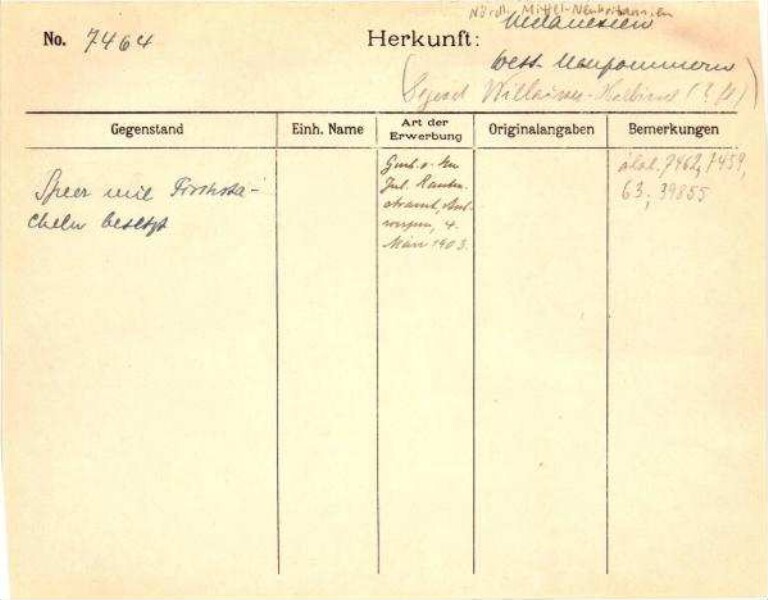 Nördl. Mittel-Neubritannien
No. 7464 Herkunft: Melanesien
West-Neupommern
(Gegend Willaumez-Halbinsel (?)
Gegenstand Einh. Name Art der Erwerbung Originalangaben Bemerkungen
Speer mit Fischsta-
cheln besetzt
Jul. Rauten-
strauch, Ant-
werpen, 4.
März 1903.
7462, 7459,
63; 39855